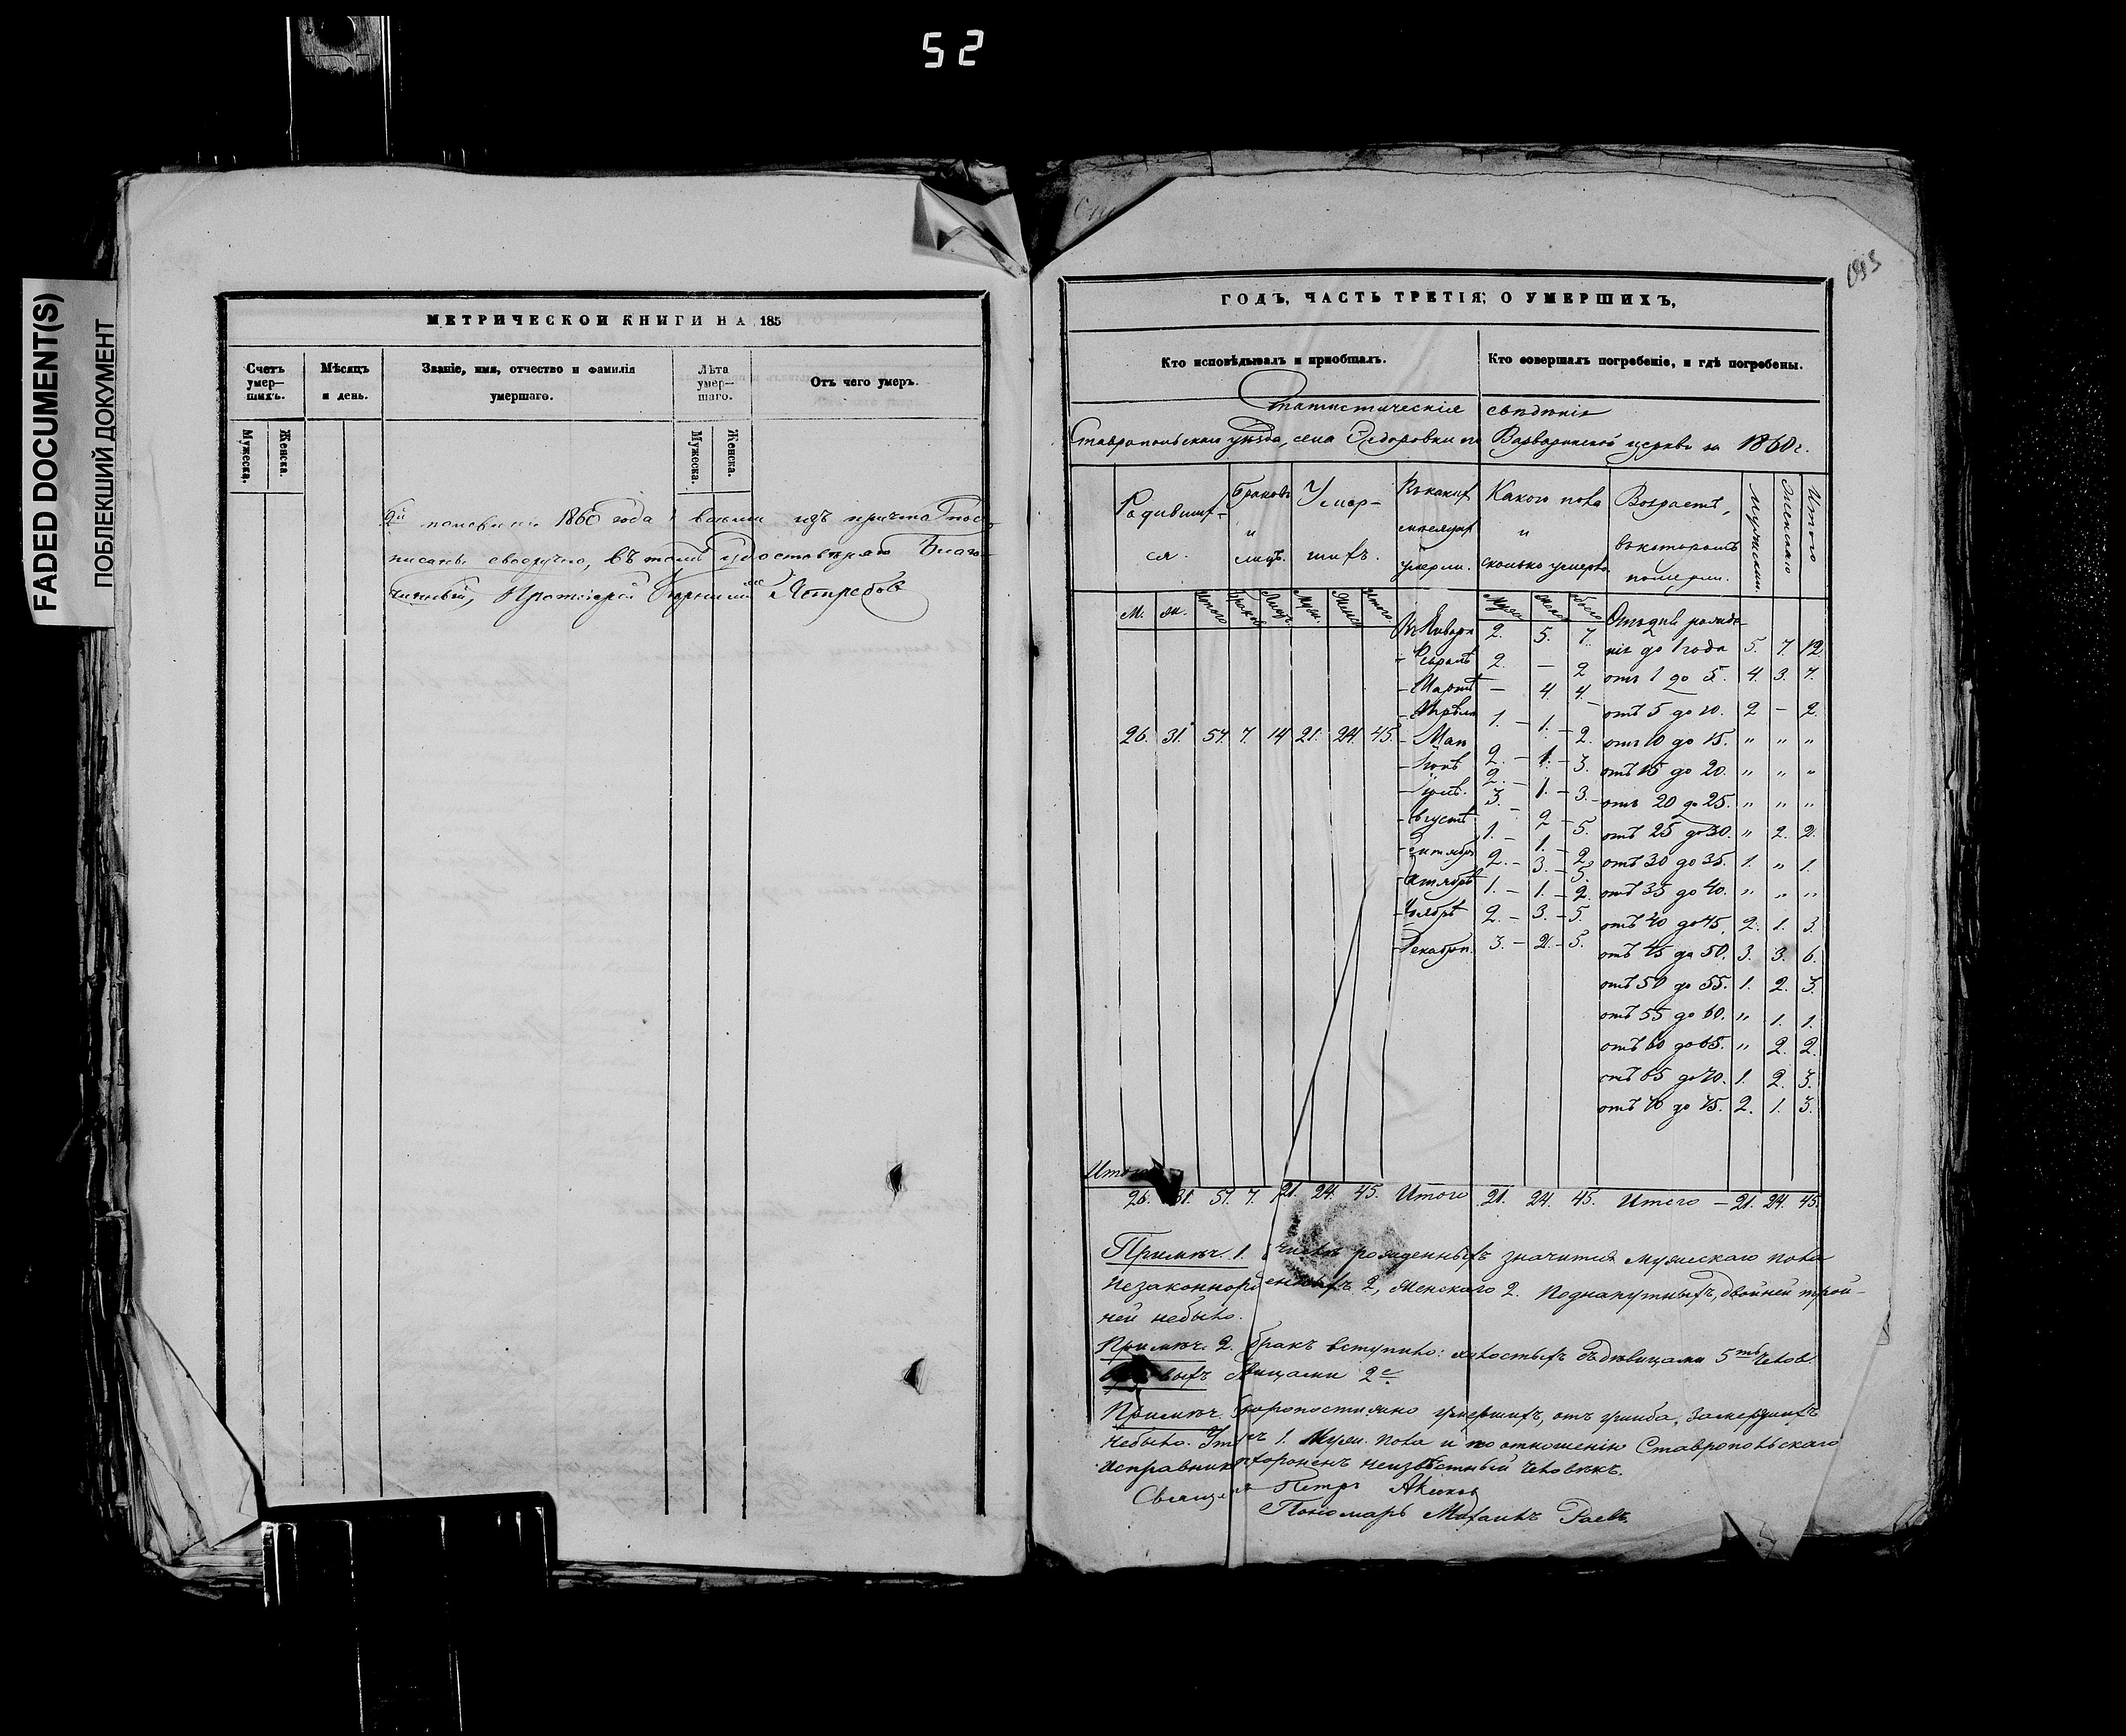 52
FADED DOCUMENT(S)
ПОБЛЕКШИЙ ДОКУМЕНТ
МЕТРИЧЕСКОЙ КНИГИ НА 185
Счетъ умер—шихъ.
Мѣсяцъ и день.
Званіе, имя, отчество и фамилія умершаго.
Лѣта умер—шаго.
Отъ чего умеръ.
Мужеска.
Женска.
Мужеска.
Женска.
1860 года причта
писаны въ томъ удостовѣряю Благо-
чинный, Протоіерей Ястребовъ
ГОДЪ, ЧАСТЬ ТРЕТІЯ, О УМЕРШИХЪ,
Кто исповѣдывалъ и пріобщалъ.
Кто совершалъ погребеніе, и гдѣ погребены.
Статистическія свѣдѣнія
Ставропольскаго уѣзда, села Ѳедоровки Варваринской церкви за 1860 г.
Родившихся.
Браковъ и лицъ.
Умершихъ.
Въ какихъ умерли.
Какого пола и сколько умерло
Возрастъ, въ которомъ померли.
Мужескаго
Женскаго
Итого
М. Ж. Итого
Въ Январѣ 2. 5. 7.
Отъ дня рожде-
нія до 1 года 5. 7. 12
- Февралѣ 2. — 2
отъ 1 до 5. 4. 3. 7.
- Мартѣ — 4. 4.
отъ 5 до 10. 2 — 2.
- Апрѣлѣ 1. — 1. — 2.
отъ 10 до 15. " " "
26. 31. 57. 7. 14 21. 24. 45.
- Маѣ 2. — 1. — 3.
отъ 15 до 20. " " "
- Іюнѣ 2. — 1. — 3.
отъ 20 до 25. " " "
- Іюлѣ. 3. — 2 — 5.
отъ 25 до 30. " 2. 2.
- Августѣ 1. — 1. — 2.
отъ 30 до 35. 1. " 1.
- Сентябрѣ 2. — 3. — 5.
отъ 35 до 40. " " "
- Октябрѣ 1. — 1. — 2.
отъ 40 до 45. 2. 1. 3.
- Ноябрѣ 2. — 3. — 5.
отъ 45 до 50. 3. 3. 6.
- Декабрѣ. 3. — 2. — 5.
отъ 50 до 55. 1. 2. 3.
отъ 55 до 60. " 1. 1.
отъ 60 до 65. " 2. 2.
отъ 65 до 70. 1. 2. 3.
отъ 70 до 75. 2. 1. 3.
Итого
26. 31. 57. 7. 21. 24. 45. Итого 21. 24. 45. Итого — 21. 24. 45.
Примѣч. 1. рожденныхъ значится мужескаго пола
2, женскаго 2. Подкинутыхъ, двойней трой-
ней небыло.
Примѣч. 2. бракъ вступило: холостыхъ съ дѣвицами 5ть челов.
2е
Примѣч. скоропостижно умершихъ, отъ ушиба, замерзшихъ
небыло. 1. Муж. пола и по отношенію Ставропольскаго
Исправника похороненъ неизвѣстный человѣкъ.
Петръ
Пономарь Михаилъ Раевъ